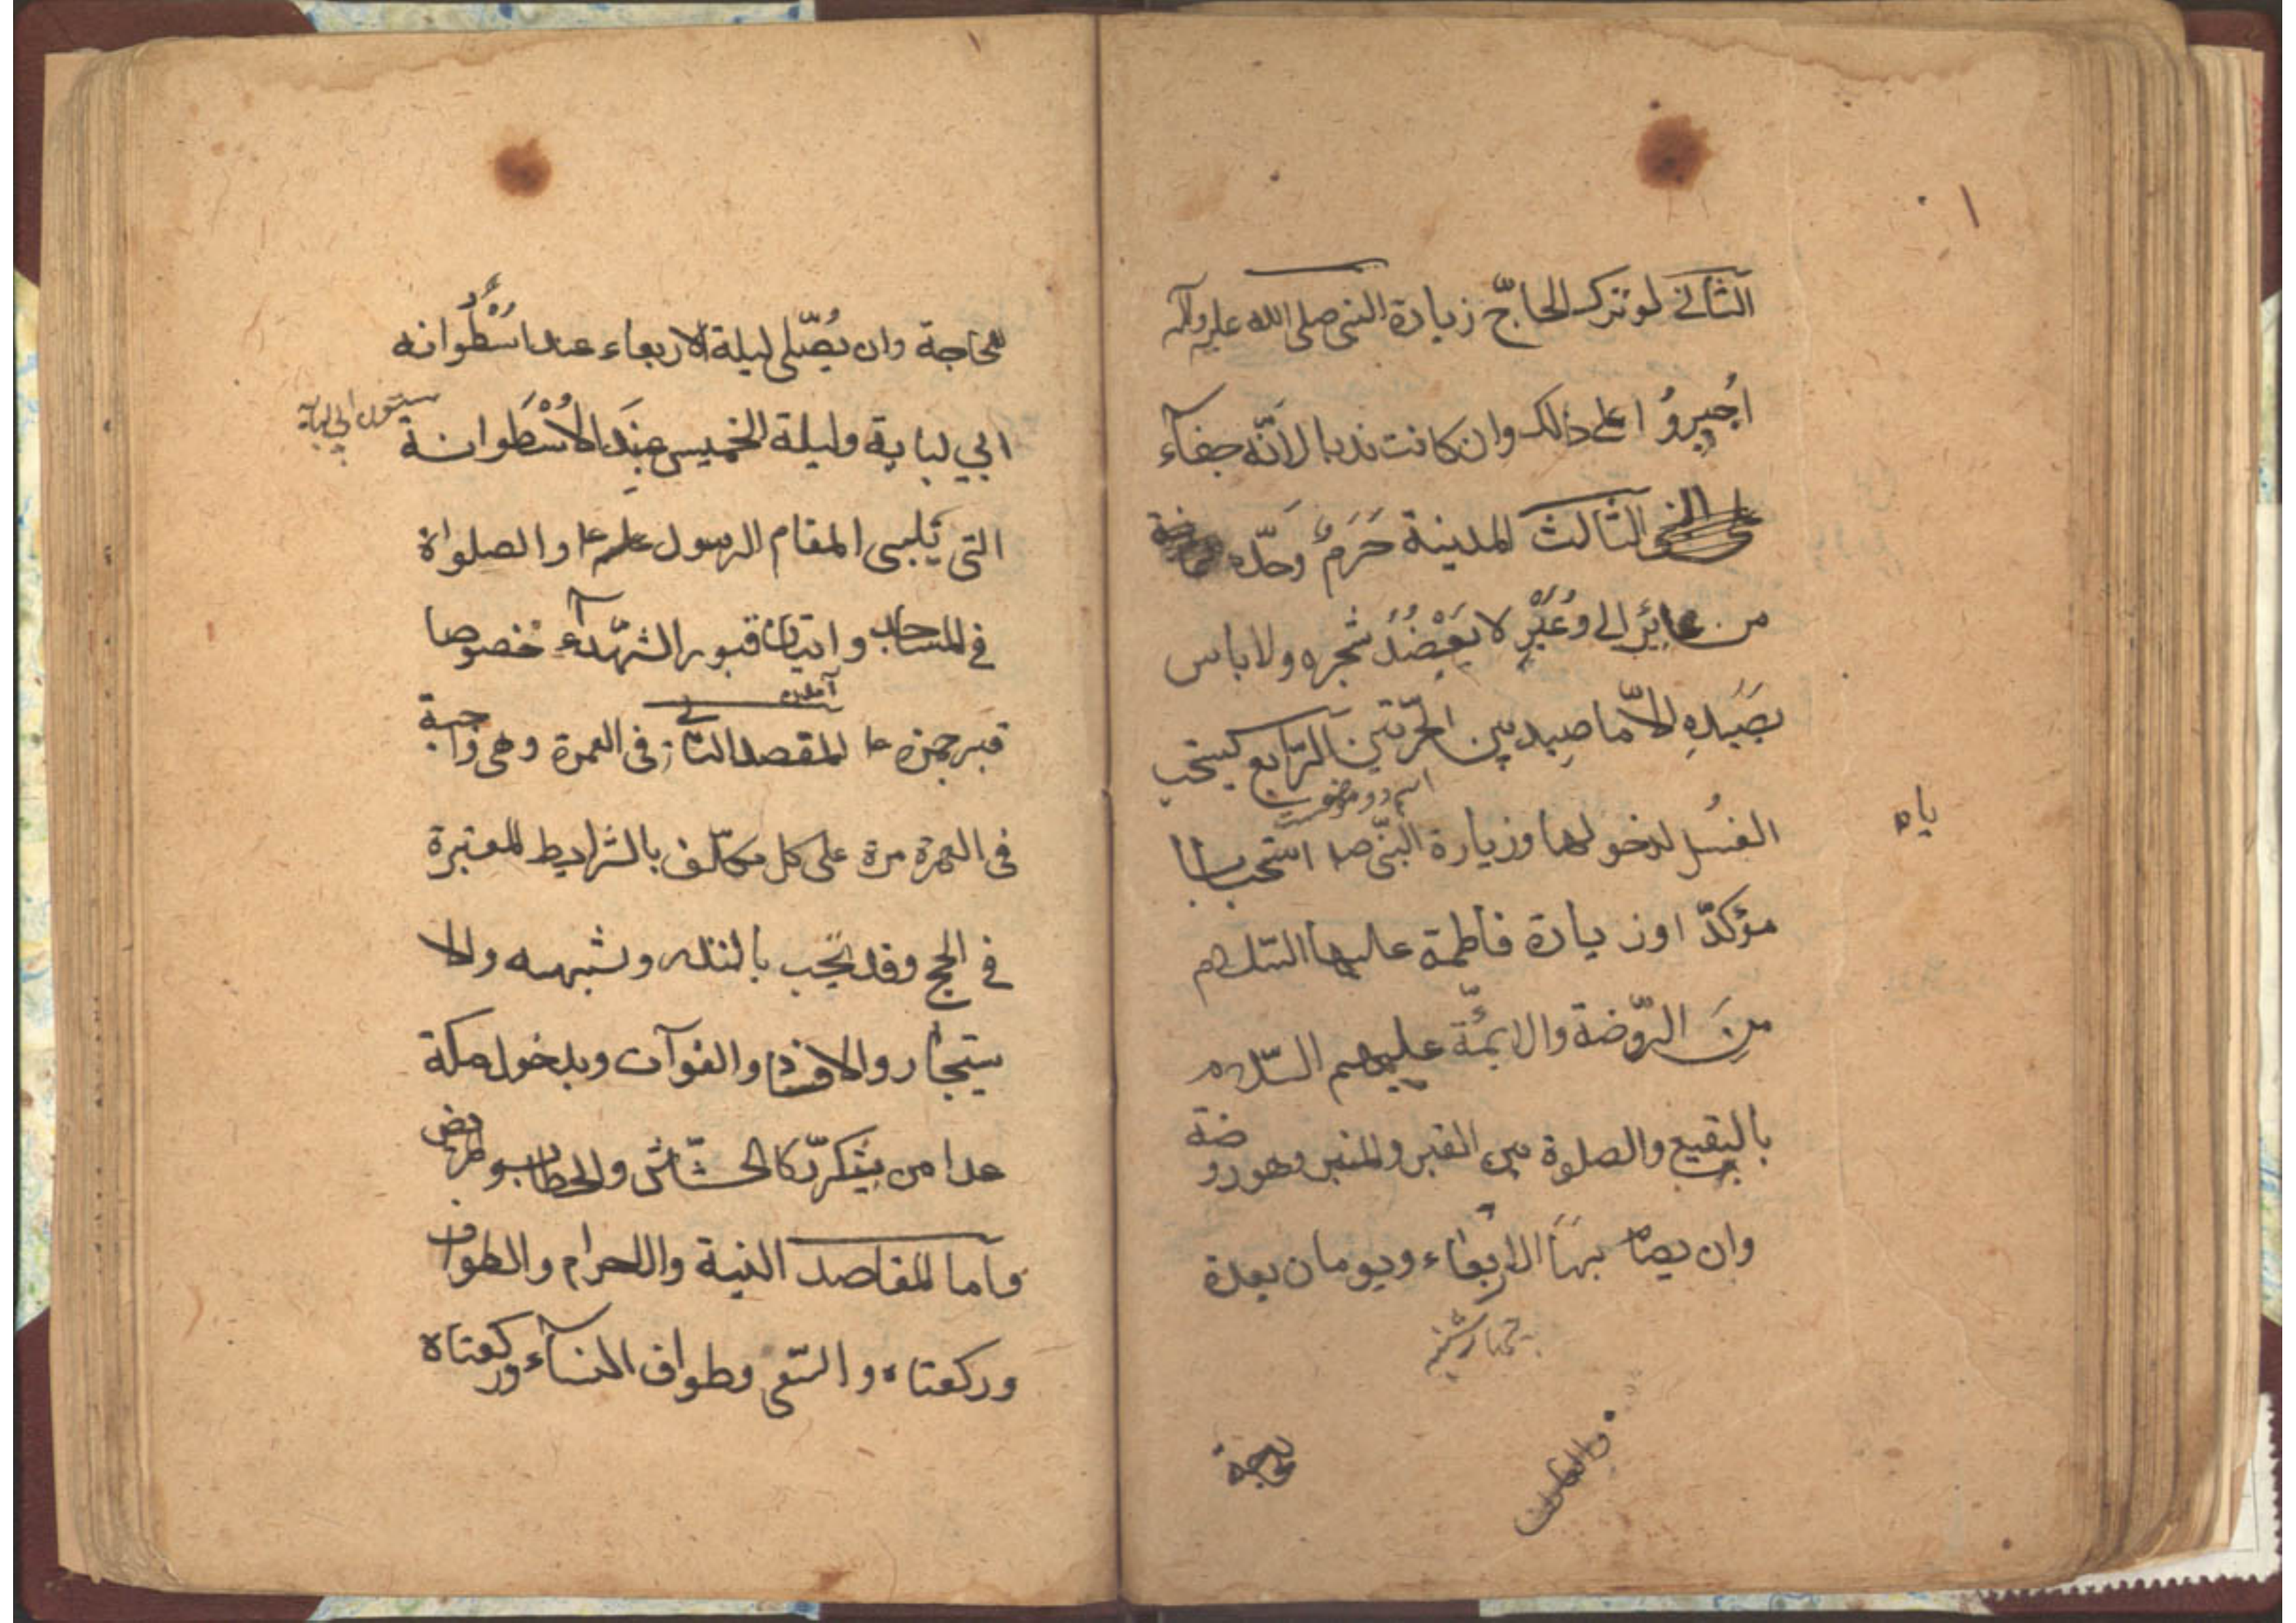 الثانى لو ترك الحاجّ زيارة النبى صلى الله عليه وآله
اُجبِروُا على ذالك وان كانت ندبا لانّه جفآء
الثالث المدينة حَرَمٌ وَحدّه
من عايِرٍ الى وُعَيْرٍ لا يعضِدُ شجره ولا باس
بصَيدِهِ الاّ ما صِيد بين الحرّتين الرّابع يستحب
اسم دو موضعست
الغُسل لدخولها وزيارة النّبى ص استحبابا
مؤكدّا وزيارة فاطمة عليها السّلام
مِنَ الرّوضة والائمّة عليهم السّلام
بالبقيع والصلوة بين القبر والمنبر وهو روضة
وان يصام بهَا الاربعَاء ويومان بعدة
چهارشنبه
للحاجة
للحاجة وان يُصّلى ليلة الاربعاء عند اسْطُوانه
ستون ابى لبابه
ابي لبابة وليلة الخميس عِندَ الاُسْطَوانة
التى يَلى المقام الرسول علیه ع والصلواة
فى المساجد واتيان قبور الشهّدآء خصوصا
قبر حمزه ع المقصد الثانى فى العمرة وهى واجبة
فى العمرة مرة على كل مكلّف بالشرايط المعتبرة
فى الحج وقد يجب بالنذر وشبهه والا
ستيجار والافساد والفوآت وبدخول مكة
عدا من يتكرّر كالحشّاش والحطاب والمريض
وآما المقاصد النية والاحرام والطواف
وركعتاه والسّعى وطواف النسآء وركعتاه